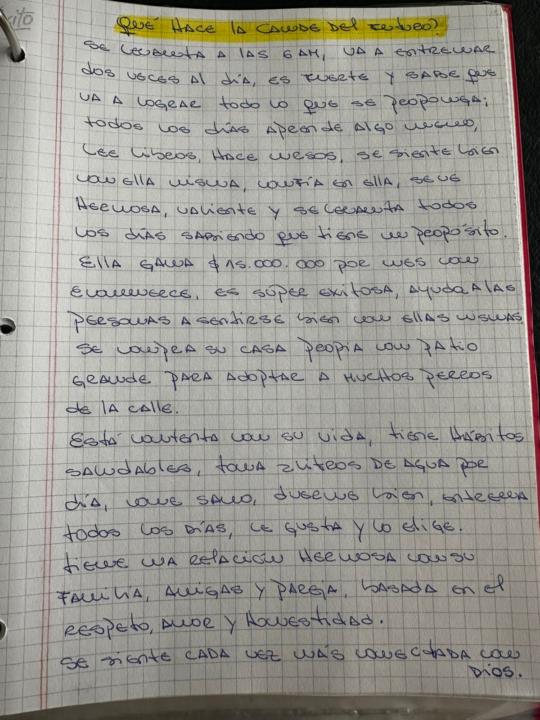 ÉXITO
QUÉ HACE LA CANDE DEL FUTURO?
SE LEVANTA A LAS 6AM, VA A ENTRENAR
DOS VECES AL DÍA, ES FUERTE Y SABE QUE
VA A LOGRAR TODO LO QUE SE PROPONGA;
TODOS LOS DÍAS APRENDE ALGO NUEVO,
LEE LIBROS, HACE CURSOS, SE SIENTE BIEN
CON ELLA MISMA, CONFÍA EN ELLA, SE VE
HERMOSA, VALIENTE Y SE LEVANTA TODOS
LOS DÍAS SABIENDO QUE TIENE UN PROPÓSITO.
ELLA GANA $15.000.000 POR MES CON
ECOMMERCE, ES SÚPER EXITOSA, AYUDA A LAS
PERSONAS A SENTIRSE BIEN CON ELLAS MISMAS.
SE COMPRA SU CASA PROPIA CON PATIO
GRANDE PARA ADOPTAR A MUCHOS PERROS
DE LA CALLE.
ESTÁ CONTENTA CON SU VIDA, TIENE HÁBITOS
SALUDABLES, TOMA 2 LITROS DE AGUA POR
DÍA, COME SANO, DUERME BIEN, ENTRENA
TODOS LOS DÍAS, LE GUSTA Y LO ELIGE.
TIENE UNA RELACIÓN HERMOSA CON SU
FAMILIA, AMIGAS Y PAREJA, BASADA EN EL
RESPETO, AMOR Y HONESTIDAD.
SE SIENTE CADA VEZ MÁS CONECTADA CON
DIOS.